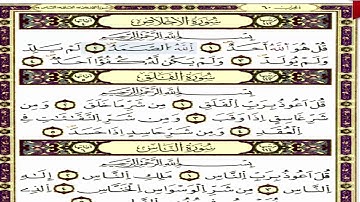 سورة الإخلاص
بسم الله الرحمن الرحيم
قل هو الله أحد ١ الله الصمد ٢ لم يلد
ولم يولد ٣ ولم يكن له كفوا أحد ٤
سورة الفلق
بسم الله الرحمن الرحيم
قل أعوذ برب الفلق ١ من شر ما خلق ٢ ومن
شر غاسق إذا وقب ٣ ومن شر النفاثات في
العقد ٤ ومن شر حاسد إذا حسد ٥
سورة الناس
بسم الله الرحمن الرحيم
قل أعوذ برب الناس ١ ملك الناس ٢ إله
الناس ٣ من شر الوسواس الخناس ٤ الذي